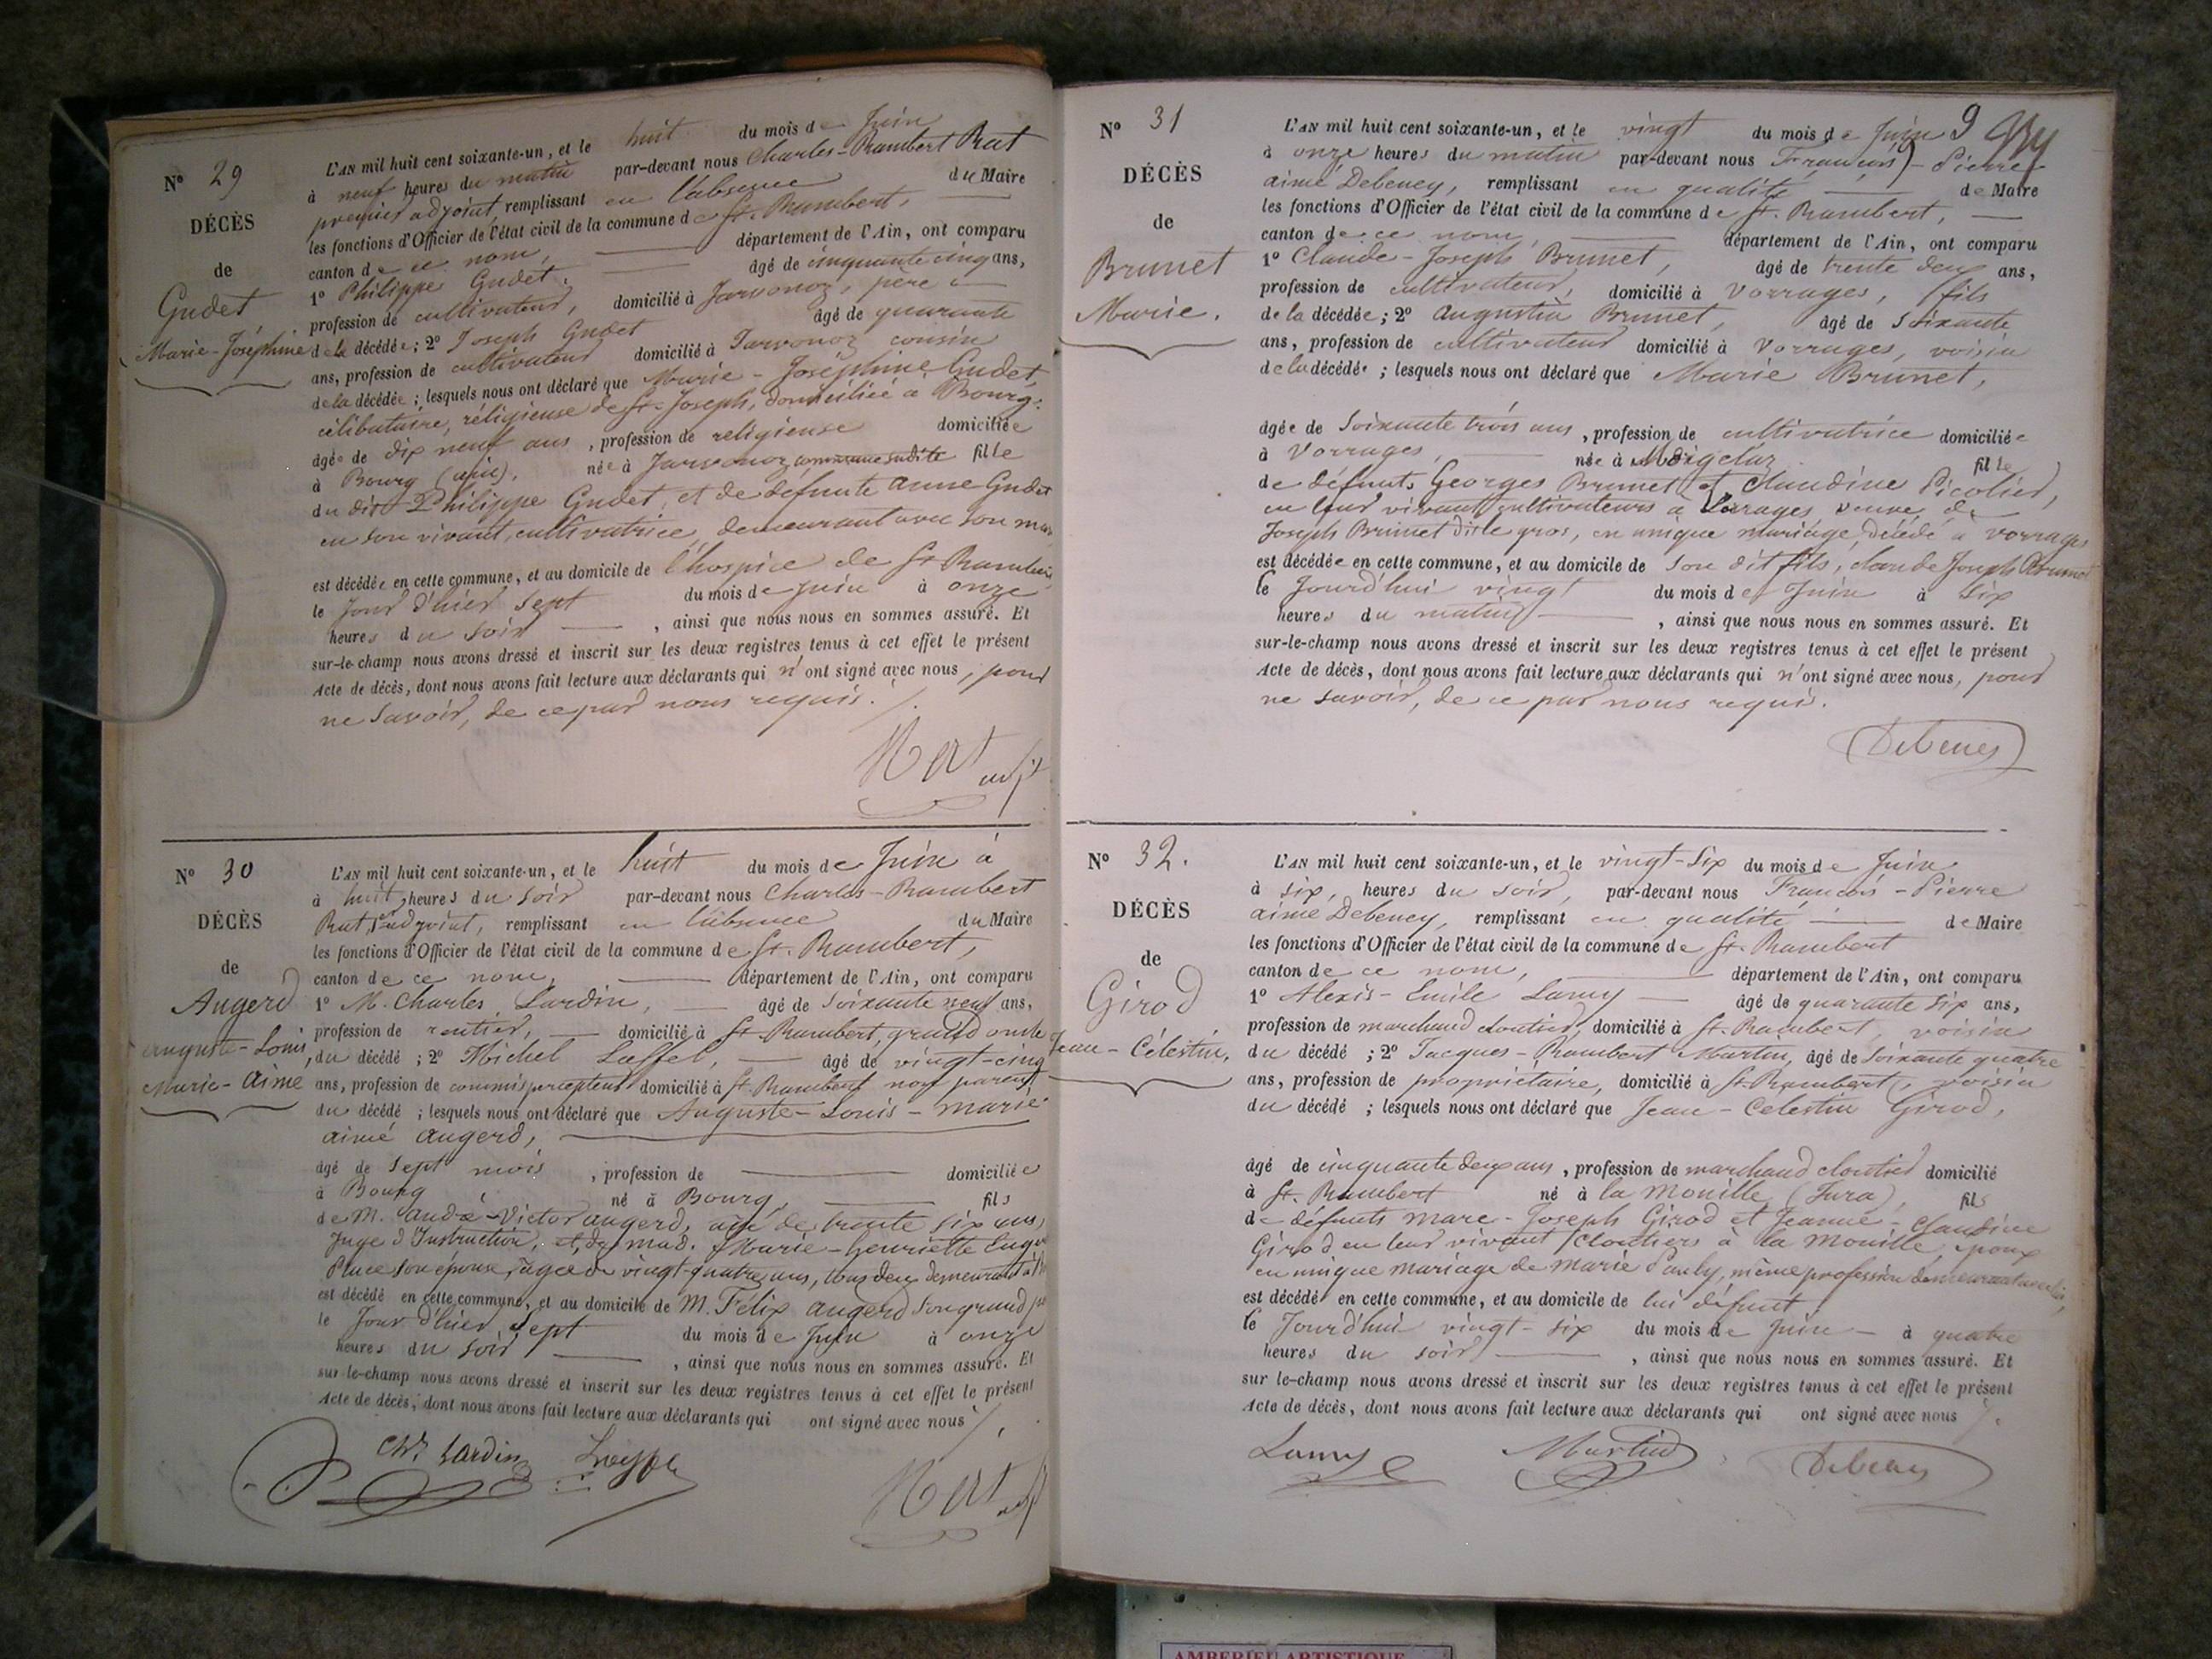 N° 29
DÉCÈS
de
Gudet
Marie-Joséphine
L'AN mil huit cent soixante-un, et le huit du mois de Juin
à neuf heures du matin par-devant nous Charles-Rambert Rat
premier adjoint, remplissant en l'absence du Maire
les fonctions d'Officier de l'état civil de la commune de St. Rambert,
canton de ce nom, département de l'Ain, ont comparu
1° Philippe Gudet, âgé de cinquante cinq ans,
profession de cultivateur, domicilié à Javornoz, père
de la décédée; 2° Joseph Gudet âgé de quarante
ans, profession de cultivateur domicilié à Javornoz cousin
de la décédée; lesquels nous ont déclaré que Marie-Joséphine Gudet,
célibataire, réligieuse de St. Joseph, domiciliée à Bourg.
âgée de dix neuf ans, profession de religieuse domiciliée
à Bourg (ain), née à Javornoz commune susdite fille
du dit Philippe Gudet, et de défunte anne Gudet
en son vivant, cultivatrice, demeurant avec son mari
est décédée en cette commune, et au domicile de l'hospice de St Rambert
le Jour d'hier sept du mois de Juin à onze
heures du soir, ainsi que nous nous en sommes assuré. Et
sur-le-champ nous avons dressé et inscrit sur les deux registres tenus à cet effet le présent
Acte de décès, dont nous avons fait lecture aux déclarants qui n'ont signé avec nous, pour
ne savoir, de ce par nous requis.
Rat adjt
N° 30
DÉCÈS
de
Augerd
auguste-Louis,
Marie-aimé
L'AN mil huit cent soixante-un, et le huit du mois de Juin à
à huit heures du soir par-devant nous Charles-Rambert
Rat, adjoint, remplissant en l'absence du Maire
les fonctions d'Officier de l'état civil de la commune de St. Rambert,
canton de ce nom, département de l'Ain, ont comparu
1° M. Charles Lardin, âgé de soixante neuf ans,
profession de rentier, domicilié à St. Rambert, grand oncle
du décédé; 2° Michel Lœffel, âgé de vingt-cinq
ans, profession de commis percepteur domicilié à St. Rambert non parent
du décédé; lesquels nous ont déclaré que Auguste-Louis-Marie
aimé augerd,
âgé de sept mois, profession de domicilié
à Bourg né à Bourg, fils
de M. andré-Victor augerd, agé de trente six ans,
Juge d'Instruction, et de mad. Marie-Henriette
Place son épouse, agée de vingt-quatre ans, tous deux demeurant à
est décédé en cette commune, et au domicile de M. Félix augerd son grand
le Jour d'hier sept du mois de Juin à onze
heures du soir, ainsi que nous nous en sommes assuré. Et
sur-le-champ nous avons dressé et inscrit sur les deux registres tenus à cet effet le présent
Acte de décès, dont nous avons fait lecture aux déclarants qui ont signé avec nous
Chs Lardin
Rat adjt
9
N° 31
DÉCÈS
de
Brunet
Marie.
L'AN mil huit cent soixante-un, et le vingt du mois de Juin
à onze heures du matin par-devant nous François-Pierre
aimé Debeney, remplissant en qualité de Maire
les fonctions d'Officier de l'état civil de la commune de St. Rambert,
canton de ce nom, département de l'Ain, ont comparu
1° Claude-Joseph Brunet, âgé de trente deux ans,
profession de cultivateur, domicilié à Vorrages, fils
de la décédée; 2° augustin Brunet, âgé de soixante
ans, profession de cultivateur domicilié à Vorrages, voisin
de la décédée; lesquels nous ont déclaré que Marie Brunet,
âgée de soixante trois ans, profession de cultivatrice domiciliée
à Vorrages, née à fille
de défunts Georges Brunet et Claudine Picolier,
en leur vivant cultivateurs à Vorages veuve de
Joseph Brunet dit le gros, en unique mariage, décédé à Vorrages
est décédée en cette commune, et au domicile de son dit fils, claude Joseph Brunet
le Jourd'hui vingt du mois de Juin à six
heures du matin, ainsi que nous nous en sommes assuré. Et
sur-le-champ nous avons dressé et inscrit sur les deux registres tenus à cet effet le présent
Acte de décès, dont nous avons fait lecture aux déclarants qui n'ont signé avec nous, pour
ne savoir, de ce par nous requis.
Debeney
N° 32.
DÉCÈS
de
Girod
Jean-Célestin,
L'AN mil huit cent soixante-un, et le vingt-six du mois de Juin
à six, heures du soir, par-devant nous François-Pierre
aimé Debeney, remplissant en qualité de Maire
les fonctions d'Officier de l'état civil de la commune de St. Rambert
canton de ce nom, département de l'Ain, ont comparu
1° Alexis-Emile Lamy âgé de quarante six ans,
profession de marchand cloutier, domicilié à St. Rambert, voisin
du décédé; 2° Jacques-Rambert Martin, âgé de soixante quatre
ans, profession de propriétaire, domicilié à St. Rambert, voisin
du décédé; lesquels nous ont déclaré que Jean-Celestin Girod,
âgé de cinquante deux ans, profession de marchand cloutier domicilié
à St. Rambert né à la Mouille (Jura), fils
de défunts marc-Joseph Girod et Jeanne-Claudine
Girod en leur vivant cloutiers à la Mouille, époux
en unique mariage de Marie, même profession demeurant
est décédé en cette commune, et au domicile de lui défunt,
le Jourd'hui vingt-six du mois de Juin à quatre
heures du soir, ainsi que nous nous en sommes assuré. Et
sur le-champ nous avons dressé et inscrit sur les deux registres tenus à cet effet le présent
Acte de décès, dont nous avons fait lecture aux déclarants qui ont signé avec nous
Lamy Martin Debeney
AMBERIEU ARTISTIQUE